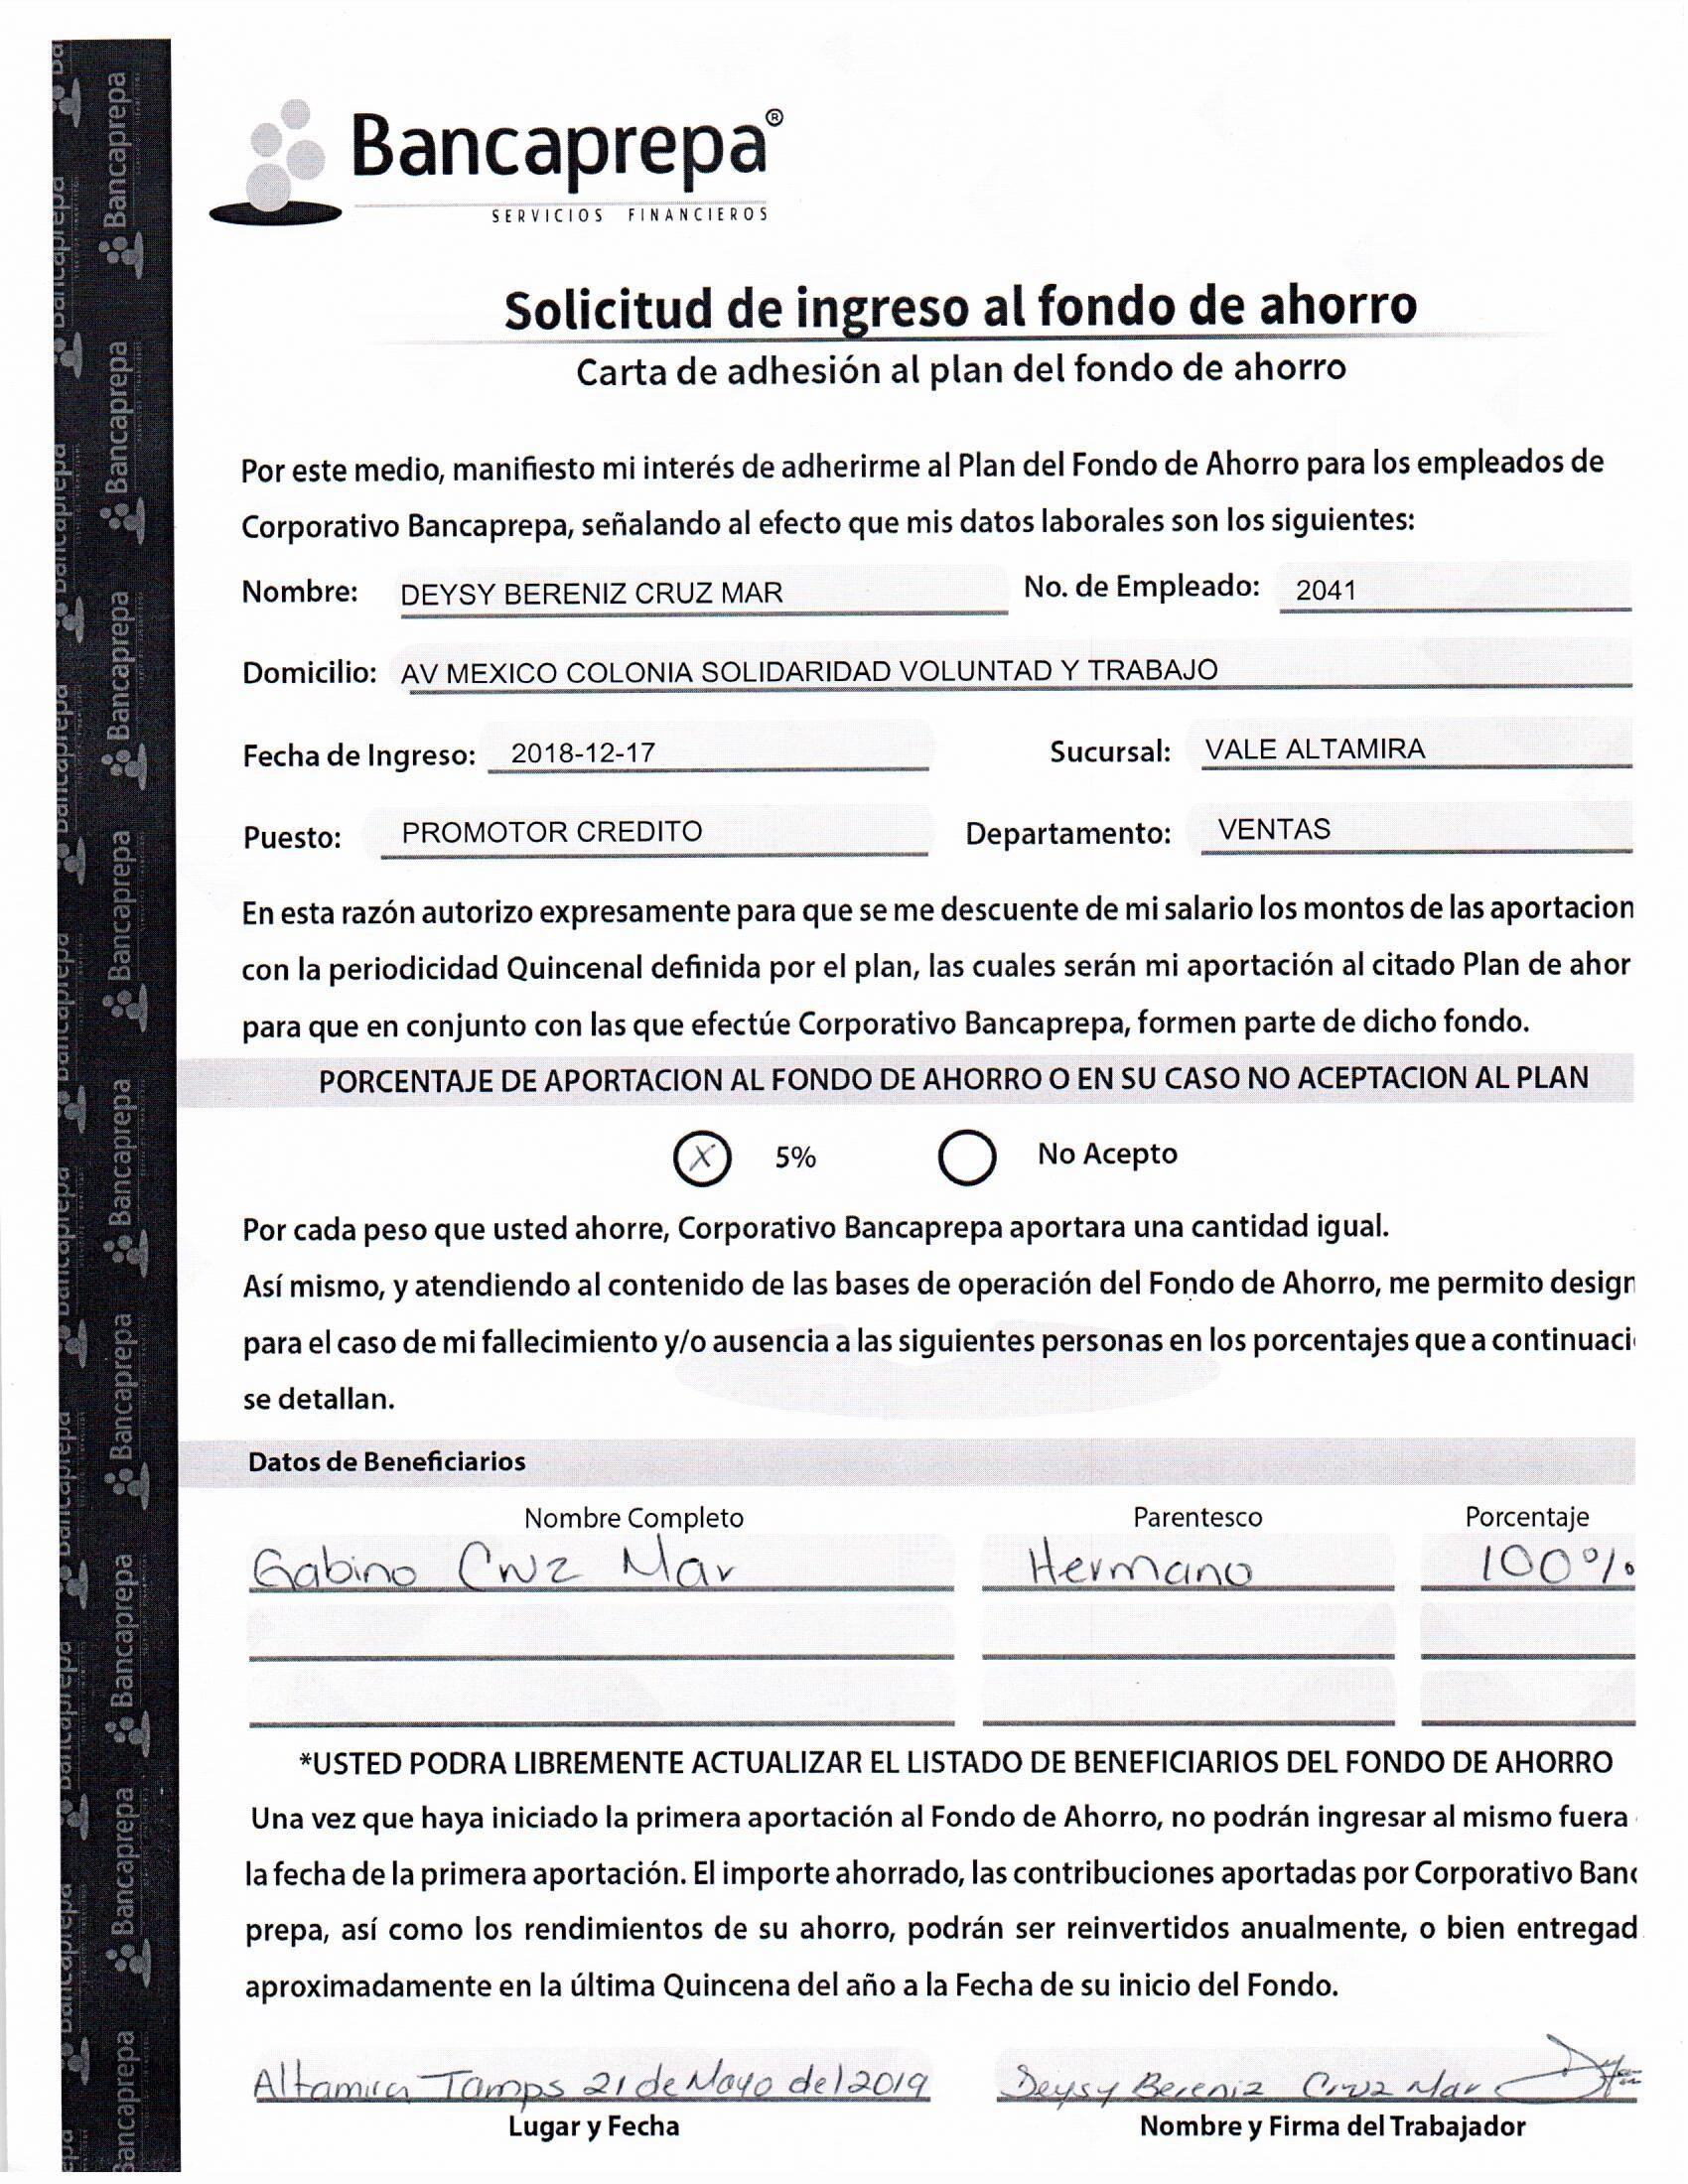 Bancaprepa®
SERVICIOS FINANCIEROS
Solicitud de ingreso al fondo de ahorro
Carta de adhesión al plan del fondo de ahorro
Por este medio, manifiesto mi interés de adherirme al Plan del Fondo de Ahorro para los empleados de
Corporativo Bancaprepa, señalando al efecto que mis datos laborales son los siguientes:
Nombre: DEYSY BERENIZ CRUZ MAR No. de Empleado: 2041
Domicilio: AV MEXICO COLONIA SOLIDARIDAD VOLUNTAD Y TRABAJO
Fecha de Ingreso: 2018-12-17 Sucursal: VALE ALTAMIRA
Puesto: PROMOTOR CREDITO Departamento: VENTAS
En esta razón autorizo expresamente para que se me descuente de mi salario los montos de las aportacion
con la periodicidad Quincenal definida por el plan, las cuales serán mi aportación al citado Plan de ahor
para que en conjunto con las que efectúe Corporativo Bancaprepa, formen parte de dicho fondo.
PORCENTAJE DE APORTACION AL FONDO DE AHORRO O EN SU CASO NO ACEPTACION AL PLAN
X 5% No Acepto
Por cada peso que usted ahorre, Corporativo Bancaprepa aportara una cantidad igual.
Así mismo, y atendiendo al contenido de las bases de operación del Fondo de Ahorro, me permito design
para el caso de mi fallecimiento y/o ausencia a las siguientes personas en los porcentajes que a continuaci
se detallan.
Datos de Beneficiarios
Nombre Completo Parentesco Porcentaje
Gabino Cruz Mar Hermano 100%
*USTED PODRA LIBREMENTE ACTUALIZAR EL LISTADO DE BENEFICIARIOS DEL FONDO DE AHORRO
Una vez que haya iniciado la primera aportación al Fondo de Ahorro, no podrán ingresar al mismo fuera
la fecha de la primera aportación. El importe ahorrado, las contribuciones aportadas por Corporativo Banc
prepa, así como los rendimientos de su ahorro, podrán ser reinvertidos anualmente, o bien entregad
aproximadamente en la última Quincena del año a la Fecha de su inicio del Fondo.
Altamira Tamps 21 de Mayo del 2019 Deysy Bereniz Cruz Mar
Lugar y Fecha Nombre y Firma del Trabajador